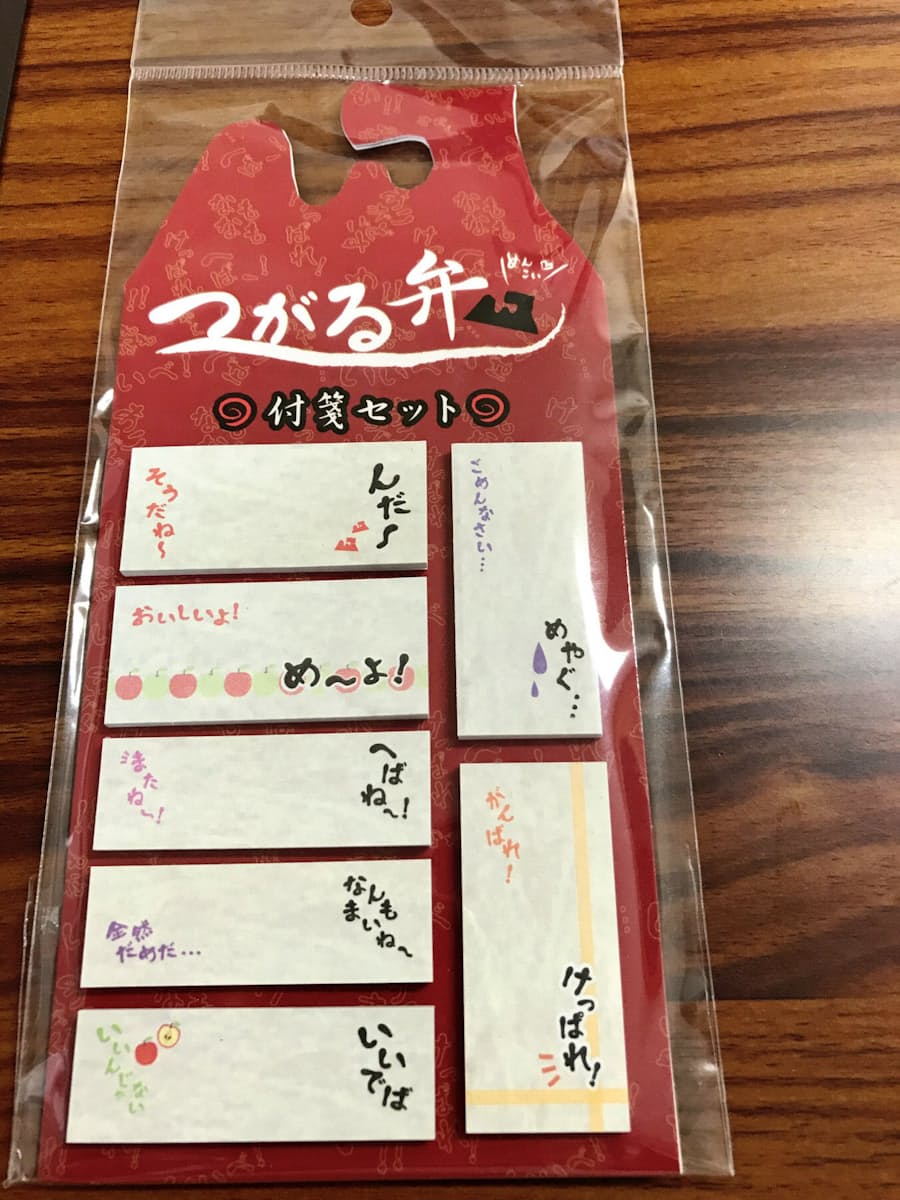 つがる弁
めんこい
付箋セット
んだ〜
そうだね〜
おいしいよ!
め〜よ!
へばね〜!
またね〜!
なんも
まいね〜
全然
だめだ…
いいでば
いいんじゃ
ない
ごめんなさい…
めやぐ…
がんばれ!
けっぱれ!